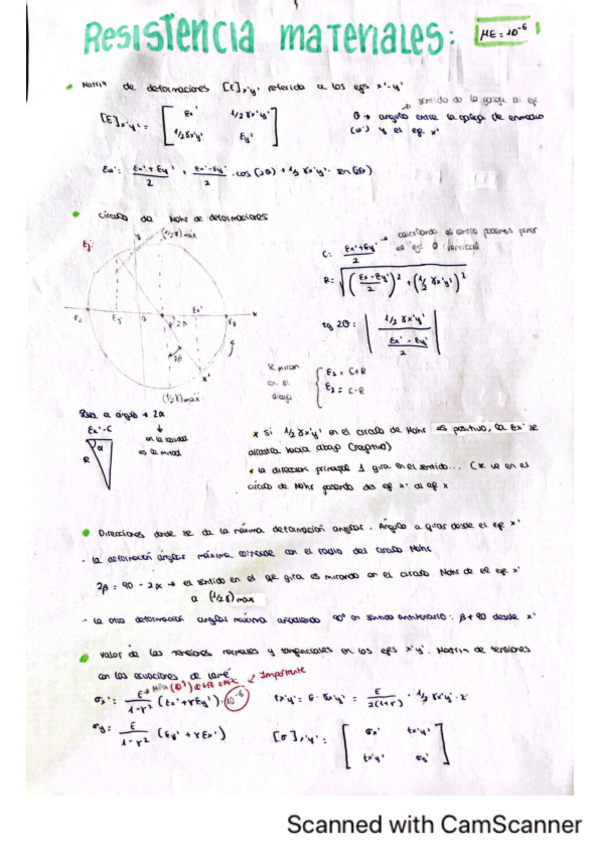 Resistencia materiales:
με = 10⁻⁶
Matriz de deformaciones [ε]x'y' referida a los ejes x'-y'
[ε]x'y' = [ εx' 1/2 γx'y'
1/2 γx'y' εy' ]
sentido de la galga al eje
θ → angulo entre la galga de enmedio
(ω') y el eje x'
εω' = εx' + εy' / 2 + εx' - εy' / 2 · cos (2θ) + 1/2 γx'y' · sen (2θ)
Círculo de Mohr de deformaciones
Ej:
y (1/2 γ) máx
ε2 εy' 0 2α εx' ε1 x
2β
x'
(1/2 γ) máx
C: εx' + εy' / 2
calculando el centro podemos poner
el eje vertical
R = √( (εx - εy' / 2)² + (1/2 γx'y')² )
tg 2θ: | 1/2 γx'y' / εx' - εy' / 2 |
se miran
en el
dibujo
ε1 = C+R
ε2 = C-R
Pasa a ángulo → 2α
εx' - C
en la realidad
es la mitad
R α
* Si 1/2 γx'y' en el círculo de Mohr es positivo, la εx' se
arrastra hacia abajo (negativo)
* la dirección principal 1 gira en el sentido... (se ve en el
círculo de Mohr pasando del eje x' al eje x
Direcciones donde se da la máxima deformación angular. Ángulo a girar desde el eje x'
- la deformación angular máxima coincide con el radio del círculo Mohr
2β = 90 - 2α → el sentido en el que gira es mirando en el círculo Mohr de el eje x'
a (1/2 γ) máx
- la otra deformación angular máxima añadiendo 90° en sentido antihorario: β + 90 desde x'
Valor de las tensiones normales y tangenciales en los ejes x'y'. Matriz de tensiones
con las ecuaciones de Lamé
Importante
σx': E / 1-ν² (εx' + νεy') · 10⁻⁶
τx'y' = G · γx'y' = E / 2(1+ν) · 1/2 γx'y' · 2
σy: E / 1-ν² (εy' + νεx')
[σ]x'y': [ σx' τx'y'
τx'y' σy' ]
Scanned with CamScanner